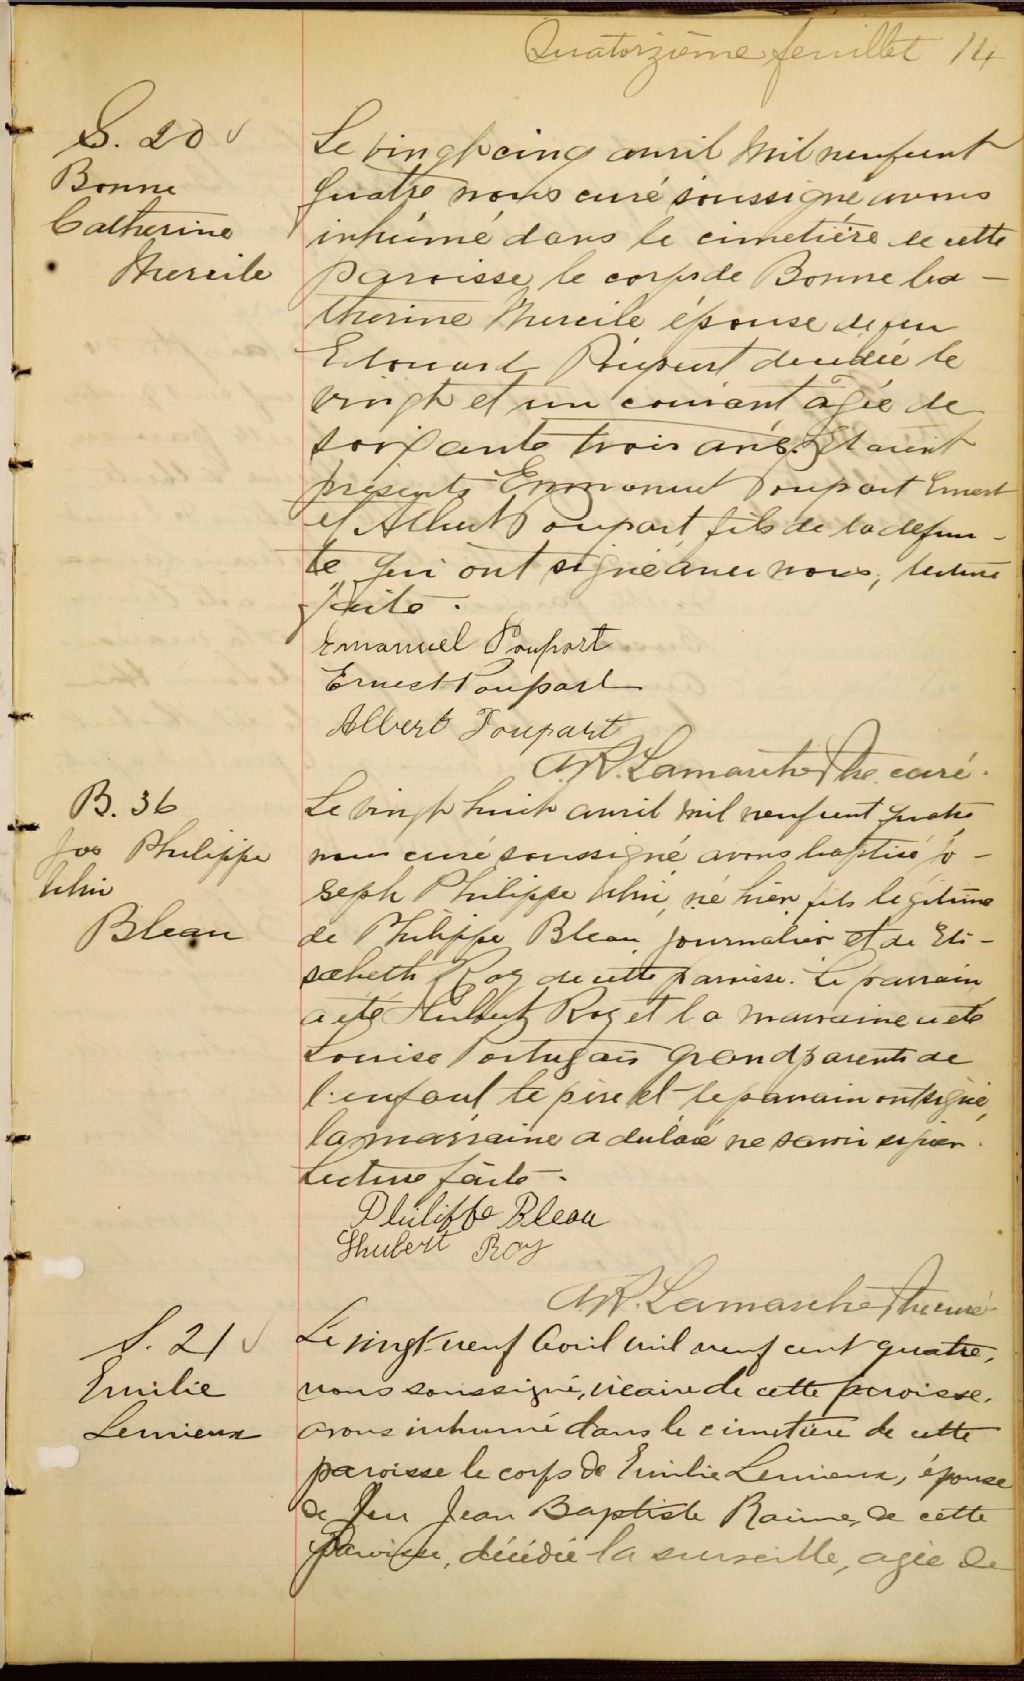 Quatorzième feuillet 14
S. 20
Bonne
Catherine
Mercile
Le vingt cinq avril mil neuf cent
quatre nous curé soussigné avons
inhumé dans le cimetière de cette
paroisse le corps de Bonne Ca-
therine Mercile épouse de feu
Edouard Poupart décédée le
vingt et un courant âgée de
soixante trois ans. Etaient
présents Emmanuel Poupart Ernest
et Albert Poupart fils de la défun-
te qui ont signé avec nous, lecture
faite.
Emanuel Poupart
Ernest Poupart
Albert Poupart
Lamarche Ptre curé.
B. 36
Jos Philippe
Bleau
Le vingt huit avril mil neuf cent quatre
nous curé soussigné avons baptisé Jo-
seph Philippe né hier, fils légitime
de Philippe Bleau journalier et de Eli-
sabeth Roy de cette paroisse. Le parrain
a été Hubert Roy et la marraine a été
Louise Portugais grandparents de
l'enfant le père et le parrain ont signé,
la marraine a déclaré ne savoir signer.
Lecture faite.
Philippe Bleau
Hubert Roy
Lamarche Ptre curé
S. 21
Emilie
Lemieux
Le vingt-neuf Avril mil neuf cent quatre,
nous soussigné, vicaire de cette paroisse,
avons inhumé dans le cimetière de cette
paroisse le corps de Emilie Lemieux, épouse
de feu Jean Baptiste de cette
paroisse, décédée la surveille, agée de